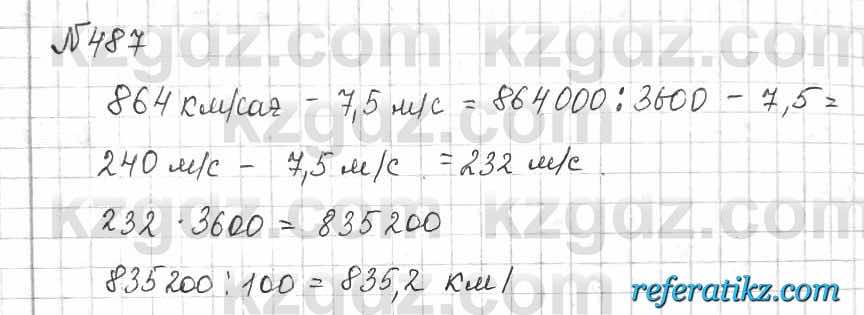 №487
864 км/сағ - 7,5 м/с = 864000 : 3600 - 7,5 =
240 м/с - 7,5 м/с = 232 м/с.
232 · 3600 = 835200
835200 : 100 = 835,2 км/
kzgdz.com kzgdz.com
kzgdz.com
kzgdz.com kzgdz.com
kzgdz.com
referatikz.com